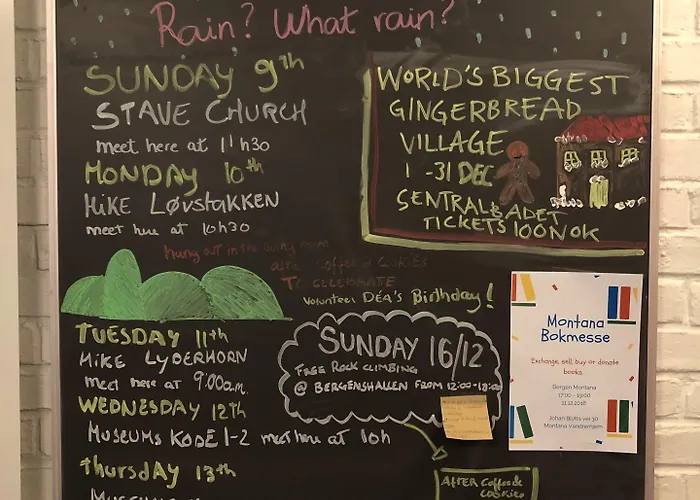 Rain? What rain?
SUNDAY 9th
STAVE CHURCH
meet here at 11h30
MONDAY 10th
HIKE LØVSTAKKEN
meet here at 10h30
Hang out in the living room
COFFEE & COOKIES
TO CELEBRATE
Volunteer DÉA'S Birthday!
TUESDAY 11th
HIKE LYDERHORN
meet here at 9:00am.
WEDNESDAY 12th
MUSEUMS KODE 1-2 meet here at 10h
Thursday 13th
WORLD'S BIGGEST
GINGERBREAD
VILLAGE
1 -31 DEC
SENTRALBADET
TICKETS 100NOK
SUNDAY 16/12
FREE ROCK CLIMBING
@ BERGENSHALLEN FROM 12:00-18:00
AFTER Coffee &
COOKIES
Montana
Bokmesse
Exchange, sell, buy or donate
books.
Bergen Montana
17:00 - 19:00
Montana Vandrerhjem